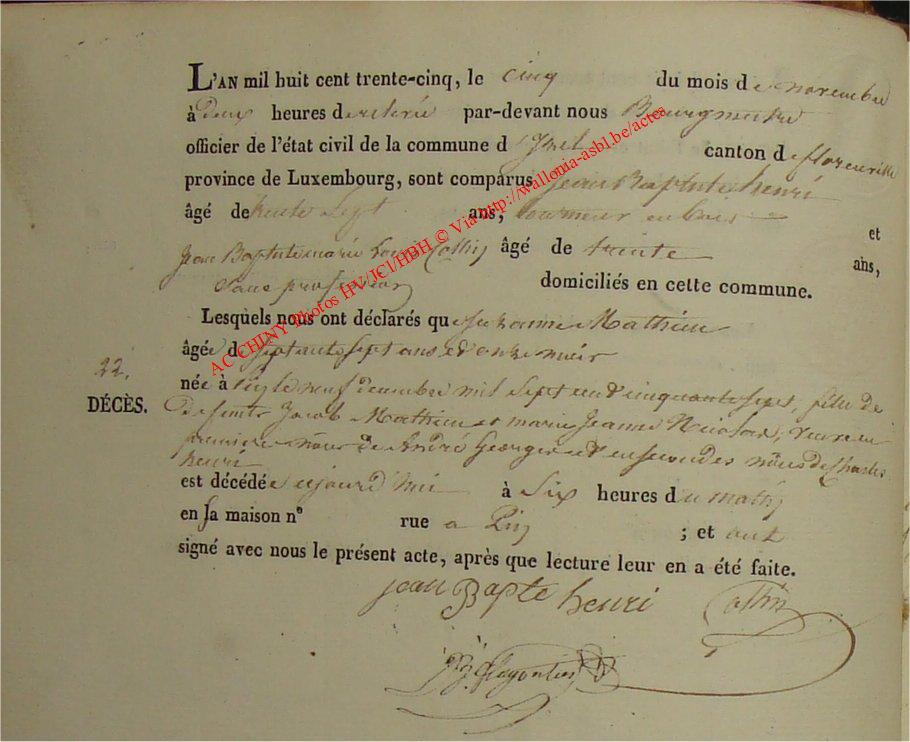 L'AN mil huit cent trente-cinq, le cinq du mois de novembre
à deux heures de relevée par-devant nous Bourgmestre
officier de l'état civil de la commune d'Izel canton de florenville
province de Luxembourg, sont comparus jean Baptiste henri
âgé de trente sept ans, tourneur en bois et
jean Baptiste marie Louis Collin âgé de trente ans,
sans profession domiciliés en cette commune.
Lesquels nous ont déclarés que suzanne Mathieu
âgée de septante sept ans et onze mois
22.
DÉCÈS.
née à le neuf décembre mil sept cent cinquante sept, fille de
defunts Jacob Mathieu et marie Jeanne, veuve en
premiere nôces de André Georges et en secondes nôces de Charles
henri
est décédée aujourd'hui à Six heures du matin
en sa maison n° rue a Pin ; et ont
signé avec nous le présent acte, après que lecture leur en a été faite.
jean Bapte henri Collin
AC CHINY Photos HV/JCl/HBH © Via http://wallonia-asbl.be/actes